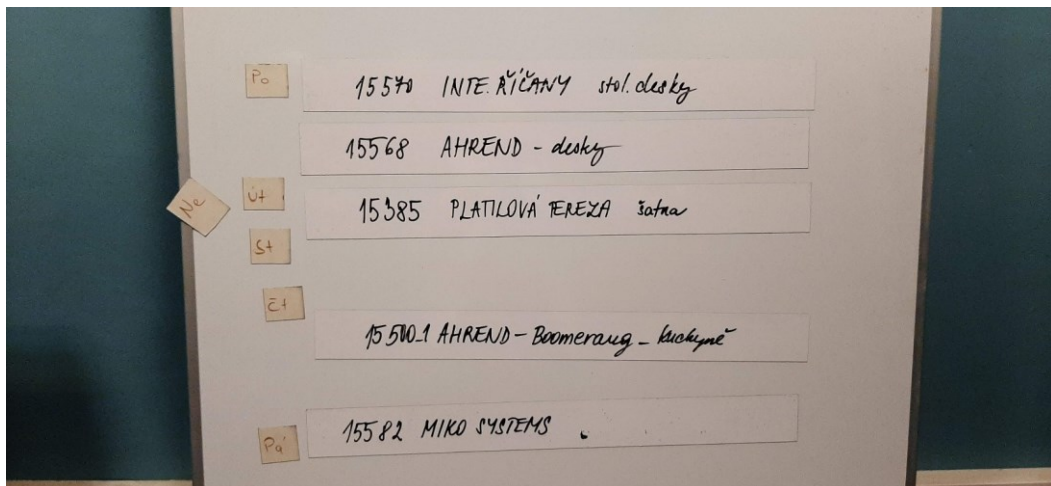 Po 15570 INTE. ŘÍČANY stol. desky
15568 AHREND - desky
Ne Út 15385 PLATILOVÁ TEREZA šatna
St
Čt
15500_1 AHREND - Boomerang - kuchyně
Pá 15582 MIKO SYSTEMS